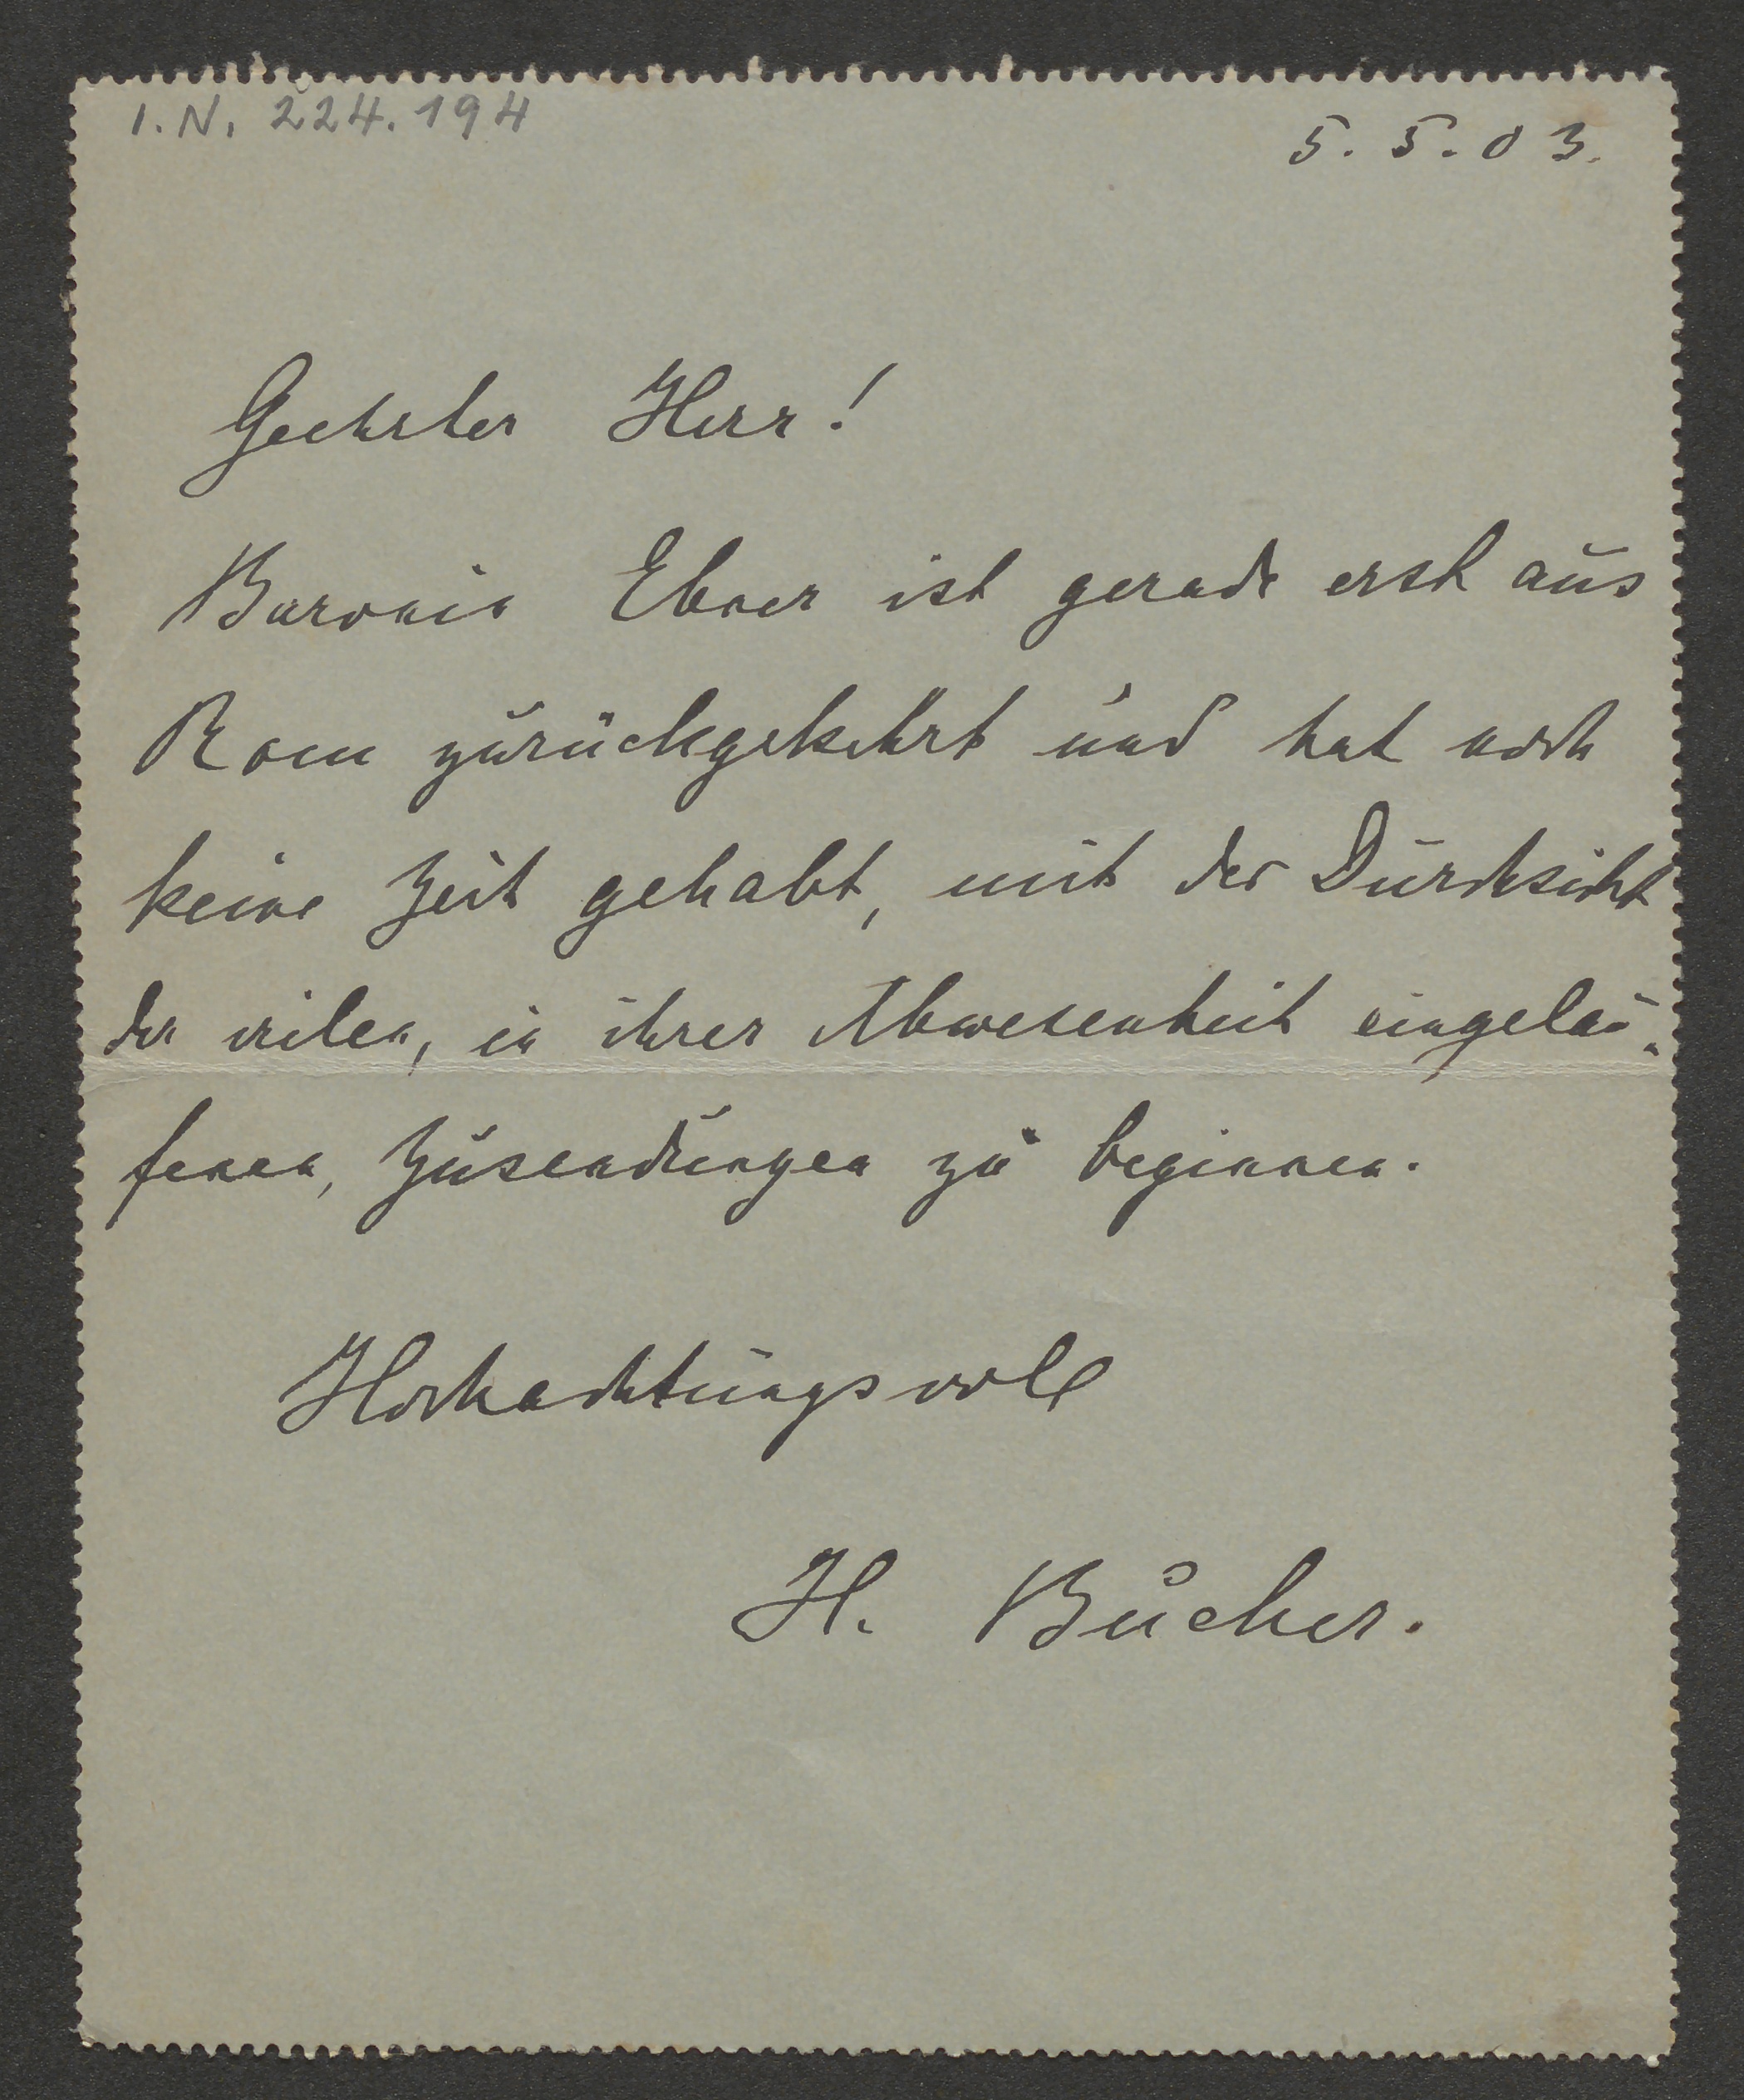 I.N. 224.194
5. 5. 03.
Geehrter Herr!
Baronin Ebner ist gerade erst aus
Rom zurückgekehrt und hat noch
keine Zeit gehabt, mit der Durchsicht
der vielen, in ihrer Abwesenheit eingelau-
fenen, Zusendungen zu beginnen.
Hochachtungsvoll
H. Bucher.